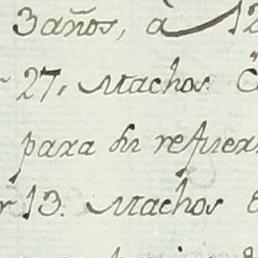 3 años, à 12
27, Machos
para su refuer
r 13. Machos